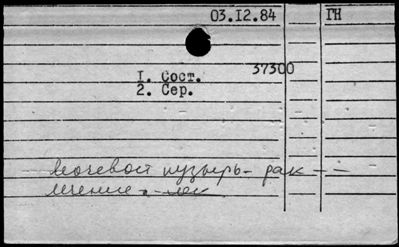 03.12.84 ГН
37300
1. Сост.
2. Сер.
мочевой пузырь - рак - -
лечение -